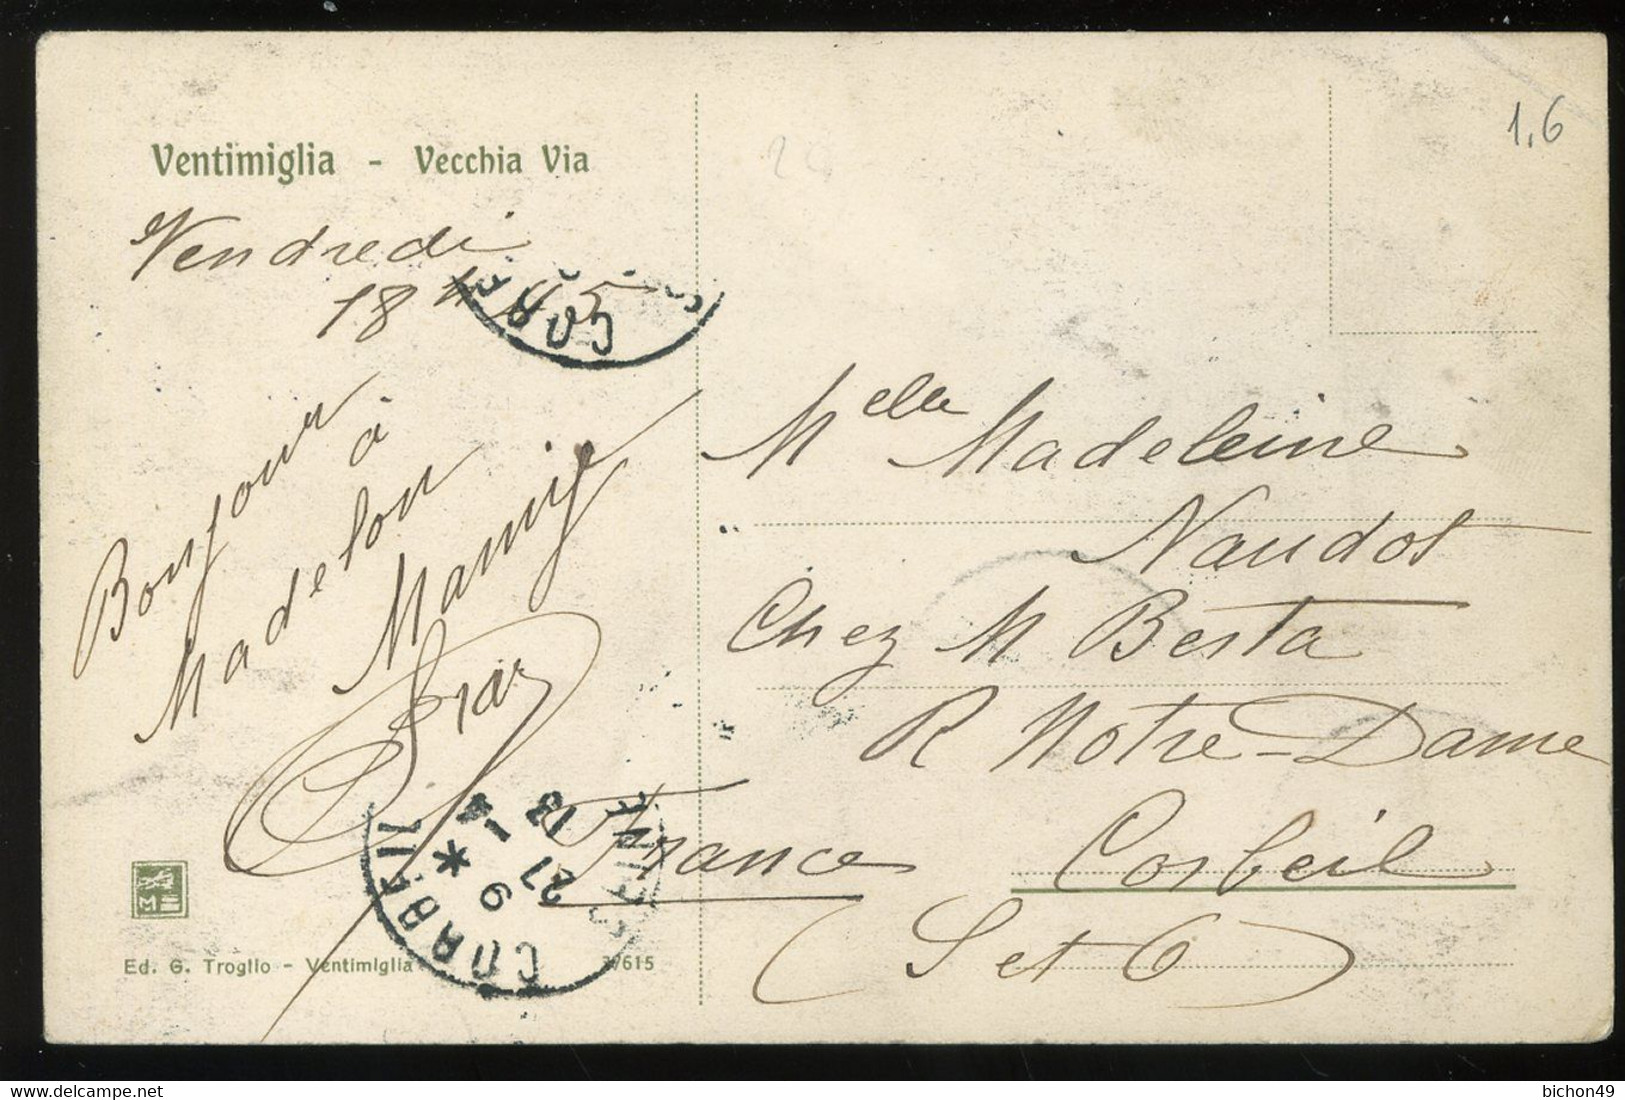 Ventimiglia - Vecchia Via
1,6
Vendredi
18
Bonjour
à
Madelon
Mamige
Melle Madeleine
Naudot
Chez M Besta
R Notre-Dame
Corbeil
France
(S et O)
CORBEIL
* 9
27 -4
13
Ed. G. Troglio - Ventimiglia
37615
bichon49